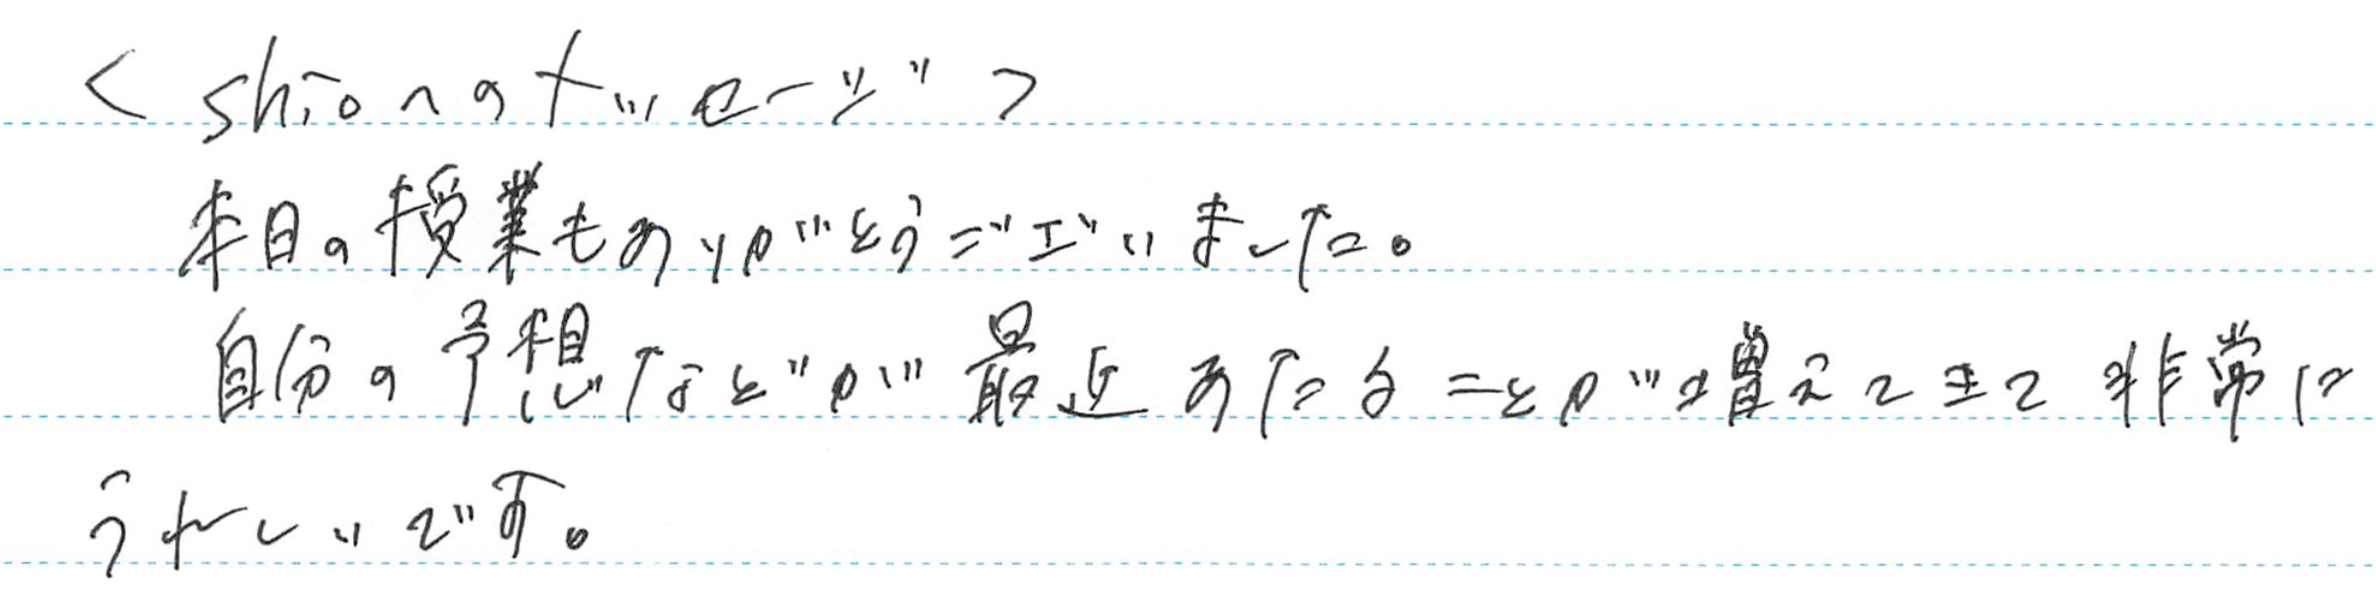 < shioへのメッセージ >
本日の授業もありがとうございました。
自分の予想などが最近あたることが増えてきて非常に
うれしいです。